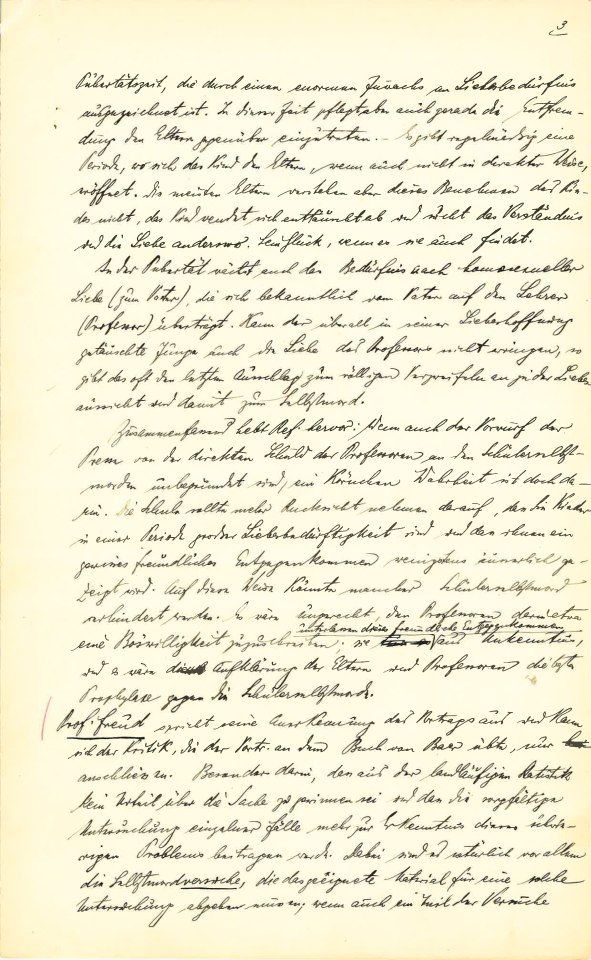 3
Pubertätszeit, die durch einen enormen Zuwachs an Liebebedürfnis
ausgezeichnet ist. In dieser Zeit pflegt aber auch gerade die Entfrem-
dung den Eltern gegenüber einzutreten. – Es gibt regelmäßig eine
Periode, wo sich das Kind den Eltern, wenn auch nicht in direkter Weise,
eröffnet. Die meisten Eltern verstehen aber dieses Benehmen des Kin-
des nicht, das Kind wendet sich enttäuscht ab und sucht das Verständnis
und die Liebe anderswo. Sein Glück, wenn es sie auch findet.
In der Pubertät wächst auch das Bedürfnis nach homosexueller
Liebe (zum Vater), die sich bekanntlich vom Vater auf den Lehrer
(Professor) überträgt. Kann der überall in seiner Liebeshoffnung
getäuschte Junge auch die Liebe des Professors nicht erringen, so
gibt das oft den letzten Ausschlag zum völligen Verzweifeln an jeder Liebes-
aussicht und damit zum Selbstmord.
Zusammenfassend hebt Ref. hervor: Wenn auch der Vorwurf der
Presse von der direkten Schuld der Professoren an den Schülerselbst-
morden unbegründet sind, ein Körnchen Wahrheit ist doch da-
rin. Die Schule sollte mehr Rücksicht nehmen darauf, daß die Kinder
in einer Periode großer Liebebedürftigkeit sind und daß ihnen ein
gewisses freundliches Entgegenkommen wenigstens innerlich ge-
zeigt wird. Auf diese Weise könnte mancher Schülerselbstmord
verhindert werden. Es wäre ungerecht, den Professoren darin etwa
eine Böswilligkeit zuzuschreiben; sie unterlassen dieses freundliche Entgegenkommen aus Unkenntnis,
und es wäre Aufklärung der Eltern und Professoren die beste
Prophylaxe gegen die Schülerselbstmorde.
Prof. Freud spricht seine Anerkennung des Vortrags aus und kann
sich der Kritik, die der Vortr. an dem Buch von Baer übte, nur
anschliessen. Besonders darin, daß aus der landläufigen Statistik
kein Urteil über die Sache zu gewinnen sei und daß die sorgfältige
Untersuchung einzelner Fälle mehr zur Erkenntnis dieses schwie-
rigen Problems beitragen werde. Dabei sind es natürlich vor allem
die Selbstmordversuche, die das geeignete Material für eine solche
Untersuchung abgeben müssen; wenn auch ein Teil der Versuche